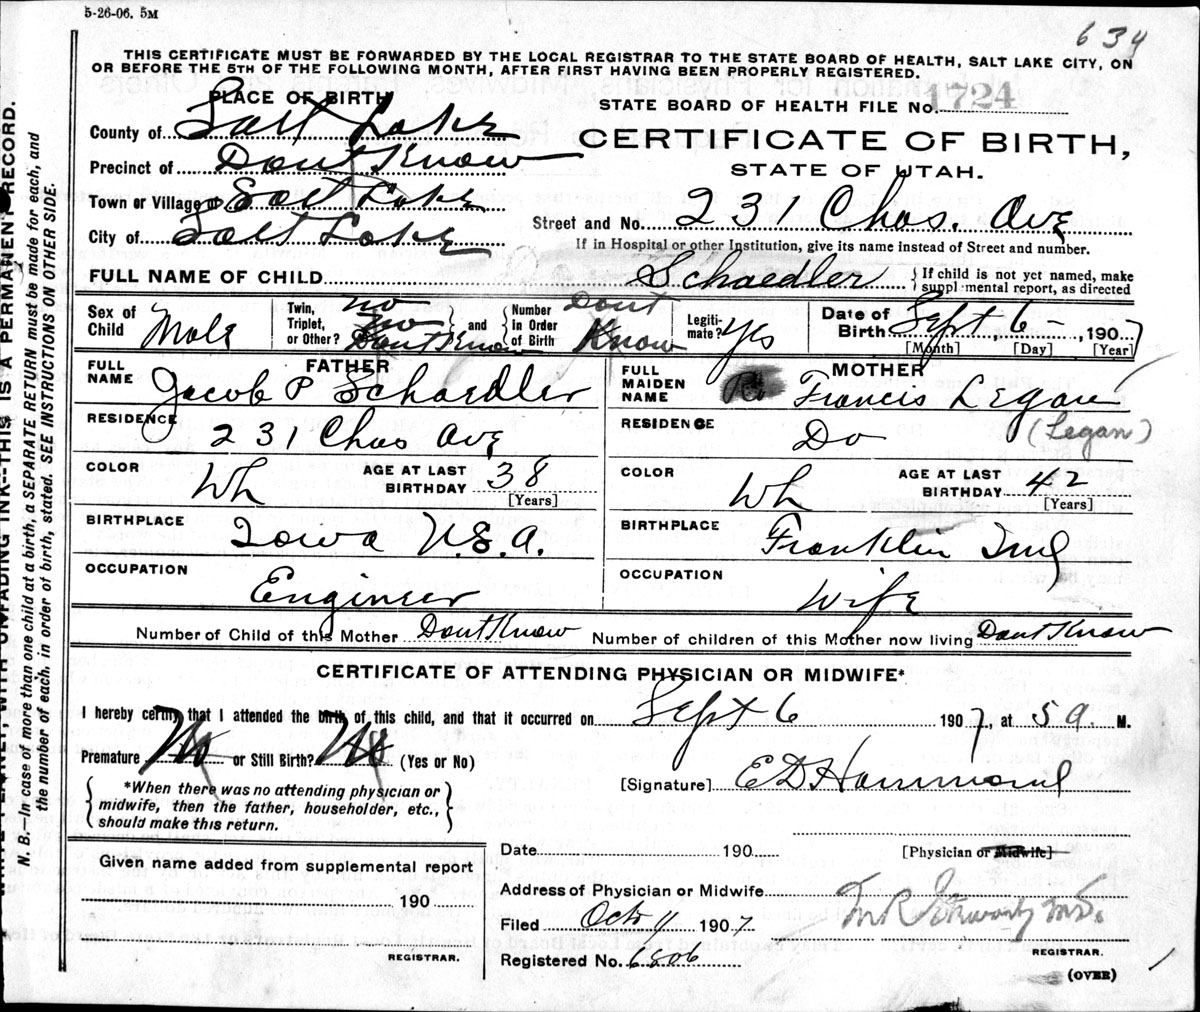 5-26-06. 5M
634
THIS CERTIFICATE MUST BE FORWARDED BY THE LOCAL REGISTRAR TO THE STATE BOARD OF HEALTH, SALT LAKE CITY, ON
OR BEFORE THE 5TH OF THE FOLLOWING MONTH, AFTER FIRST HAVING BEEN PROPERLY REGISTERED.
PLACE OF BIRTH
STATE BOARD OF HEALTH FILE No. 1724
County of Salt Lake
CERTIFICATE OF BIRTH,
Precinct of Dont Know
STATE OF UTAH.
Town or Village of Salt Lake
Street and No. 231 Chas. Ave
City of Salt Lake
If in Hospital or other Institution, give its name instead of Street and number.
FULL NAME OF CHILD Schaedler { If child is not yet named, make supplemental report, as directed
Sex of Child Male
Twin, Triplet, or Other? no no Dont Know } and { Number in Order of Birth Dont Know
Legitimate? Yes
Date of Birth Sept 6 - , 1907
[Month] [Day] [Year]
FATHER
FULL NAME Jacob P Schaedler
MOTHER
FULL MAIDEN NAME Francis Legan
RESIDENCE 231 Chas Ave
RESIDENCE Do (Legan)
COLOR Wh AGE AT LAST BIRTHDAY 38 [Years]
COLOR Wh AGE AT LAST BIRTHDAY 42 [Years]
BIRTHPLACE Iowa U.S.A.
BIRTHPLACE Franklin Ind
OCCUPATION Engineer
OCCUPATION Wife
Number of Child of this Mother Dont Know Number of children of this Mother now living Dont Know
CERTIFICATE OF ATTENDING PHYSICIAN OR MIDWIFE*
I hereby certify that I attended the birth of this child, and that it occurred on Sept 6 1907, at 5 a. M.
Premature No or Still Birth? No (Yes or No)
[Signature] E D Hammond
{ *When there was no attending physician or
midwife, then the father, householder, etc.,
should make this return. }
[Physician or Midwife]
Date 190
Given name added from supplemental report
190
REGISTRAR.
Address of Physician or Midwife
Filed Oct 11 1907
M.D.
REGISTRAR.
Registered No. 6806
(OVER)
WITH UNFADING INK--THIS IS A PERMANENT RECORD.
N. B.—In case of more than one child at a birth, a SEPARATE RETURN must be made for each, and
the number of each, in order of birth, stated. SEE INSTRUCTIONS ON OTHER SIDE.